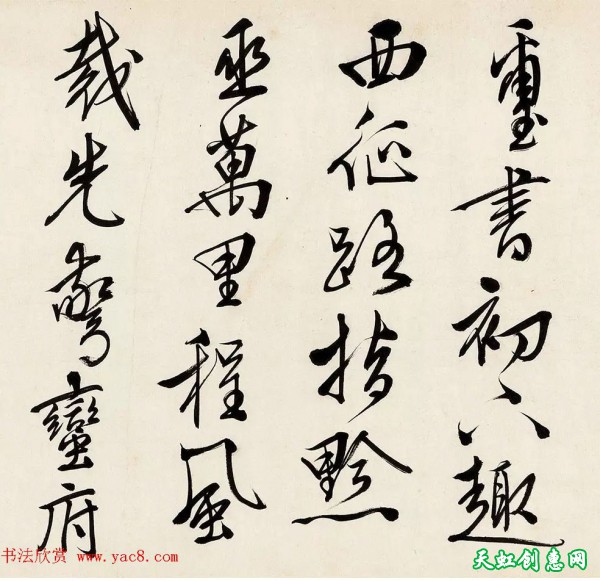 璽書初下趣
西征路指黔
巫萬里程風
裁先驚蠻府
书法欣赏 www.yac8.com
天虹创惠网